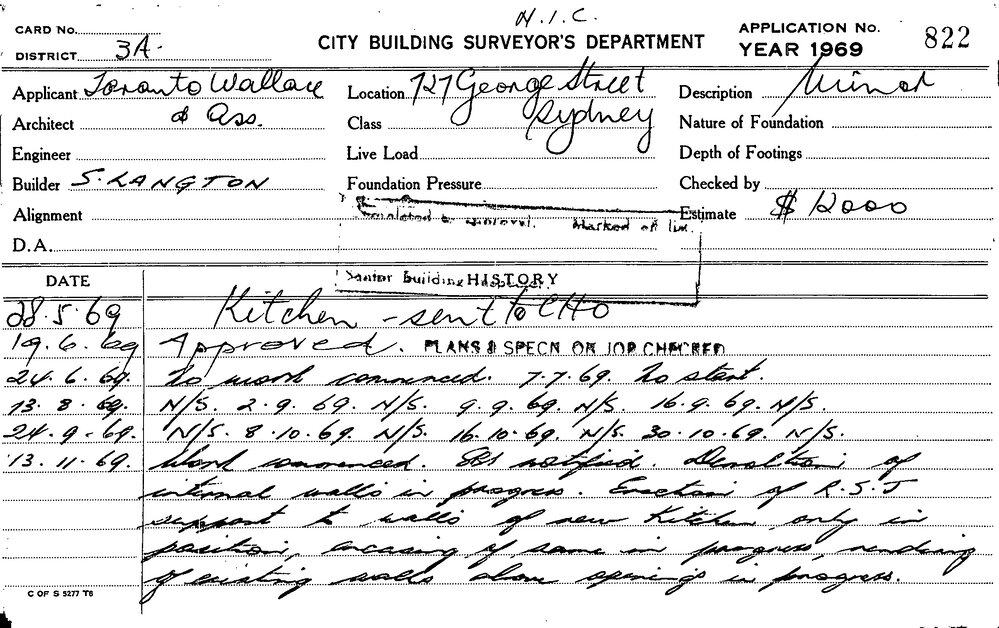 N.I.C.
CARD No.
CITY BUILDING SURVEYOR'S DEPARTMENT
APPLICATION No.
YEAR 1969
822
DISTRICT 3A.
Applicant Toranto Wallace
Location 727 George Street
Description Minor
Architect & Ass.
Class Sydney
Nature of Foundation
Engineer
Live Load
Depth of Footings
Builder S. LANGTON
Foundation Pressure
Checked by
Alignment
Marked off
Estimate $12000
D.A.
Senior Building
DATE
HISTORY
28.5.69 Kitchen - sent to CHO
19.6.69 Approved. PLANS & SPECN ON JOB CHECKED
24.6.69. No work commenced. 7.7.69. No start.
13.8.69. N/S. 2.9.69. N/S. 9.9.69. N/S. 16.9.69. N/S.
24.9.69. N/S. 8.10.69. N/S. 16.10.69. N/S. 30.10.69. N/S.
13.11.69. Work commenced. notified. Demolition of
internal walls in progress. Erection of R.S.J
support to walls of new Kitchen only in
position, encasing of same in progress, rendering
of existing walls above openings in progress.
C OF S 5277 T6